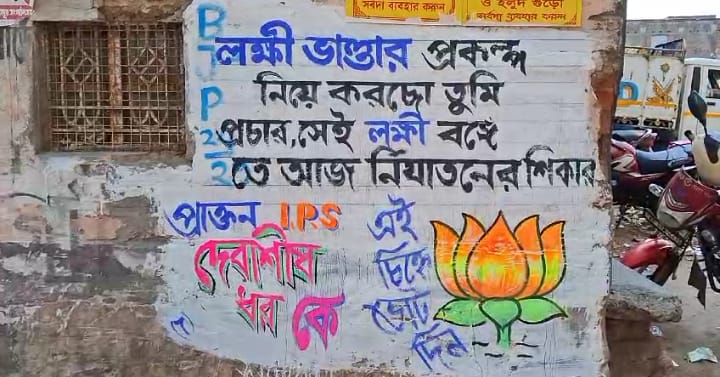 সবদা ব্যবহার করুন
ও হলুদ গুঁড়ো
ব্যবহার করুন
BJP
লক্ষ্মী ভাণ্ডার প্রকল্প
নিয়ে করছো তুমি
প্রচার, সেই লক্ষ্মী বঙ্গে
তে আজ নির্যাতনের শিকার
প্রাক্তন I.P.S
দেবাশীষ
ধর কে
এই
চিহ্নে
ভোট
দিন